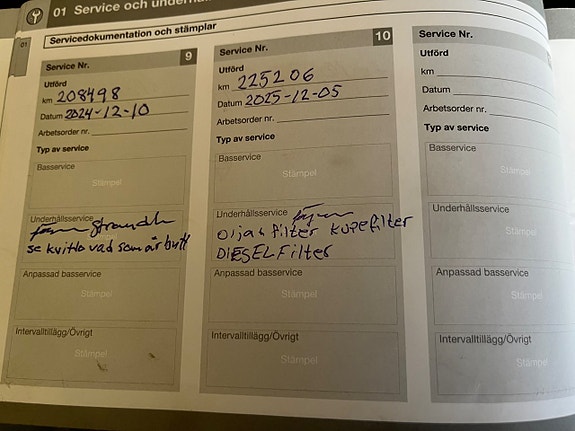 01 Service och underhå
01
Servicedokumentation och stämplar
Service Nr.
9
Utförd
km 208498
Datum 2024-12-10
Arbetsorder nr.
Typ av service
Basservice
Stämpel
Underhållsservice
se kvitto vad som är bytt
Anpassad basservice
Stämpel
Intervalltillägg/Övrigt
Stämpel
Service Nr.
10
Utförd
km 225206
Datum 2025-12-05
Arbetsorder nr.
Typ av service
Basservice
Stämpel
Underhållsservice
olja & filter kupefilter
DIESELFilter
Anpassad basservice
Stämpel
Intervalltillägg/Övrigt
Stämpel
Service Nr.
Utförd
km
Datum
Arbetsorder nr.
Typ av service
Basservice
Stämpel
Underhållsservice
Stämpel
Anpassad basservice
Stämpel
Intervalltillägg/Övrigt
Stämpel